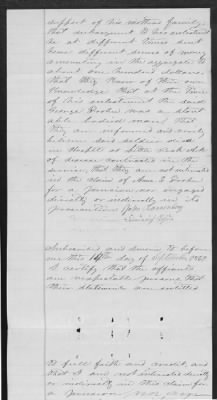 support of his mother's family
that subsequent to his enlistment
he at different times sent
home different sums of money
amounting in the aggregate to
about one hundred dollars
that they know of their own
knowledge that at the time
of his enlistment the said
George was a
able bodied man that
they are informed and verily
believe said soldier died
in Hospital at
of disease contracted in the
service, that they are not interested
in the claim of
for a pension nor engaged
directly or indirectly in its
prosecution
Subscribed and sworn to before
me this 14th day of September 1882
I certify that the affiants
are respectable persons that
their statements are entitled
to full faith and credit, and
that I am not interested directly
or indirectly in this claim for
a pension nor